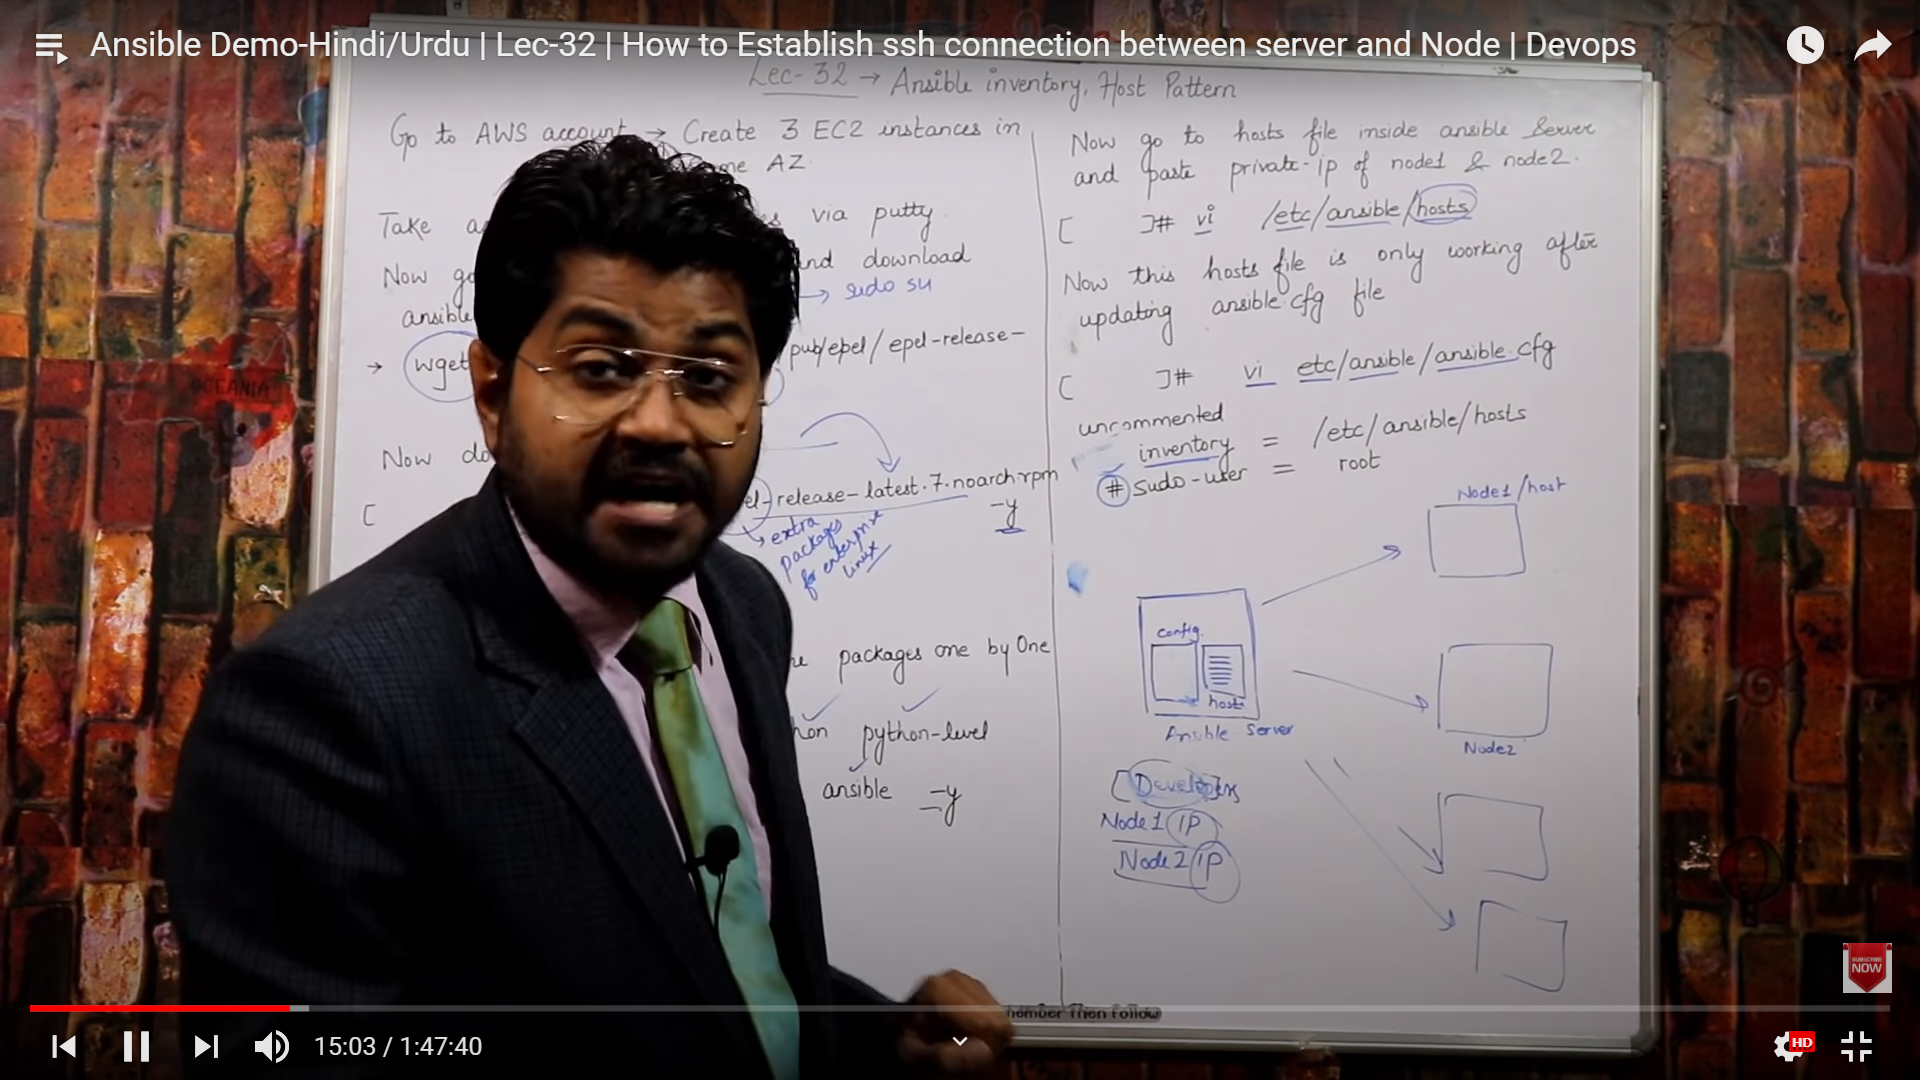 Ansible Demo-Hindi/Urdu | Lec-32 | How to Establish ssh connection between server and Node | Devops
Lec-32 → Ansible inventory, Host Pattern
Go to AWS account → Create 3 EC2 instances in
AZ.
Take
via putty
Now
and download
ansible
→ sudo su
→ wget
pub/epel/epel-release-
Now
[
release-latest.7.noarch.rpm
-y
↳ extra
packages
for enterprise
linux
packages one by One
python-level
ansible -y
Now go to hosts file inside ansible Server
and paste private-ip of node1 & node2.
[ ]# vi /etc/ansible/hosts
Now this hosts file is only working after
updating ansible.cfg file
[ ]# vi etc/ansible/ansible.cfg
uncommented
inventory = /etc/ansible/hosts
# sudo-user = root
Node1/host
config.
host
Ansible Server
Node2
[Developers
Node1 IP
Node2 IP
Then follow
SUBSCRIBE
NOW
15:03 / 1:47:40
HD